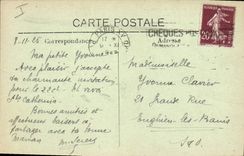 CARTE POSTALE
Correspondance
CHEQUES POS
Adresse
Ma petite Yvonne
Avec plaisir j'accepte
la charmante invitation
pour le 22 et
Ste Catherine
Bonnes amitiés et
affectueux baisers à
partager avec ta bonne
Maman
Mademoiselle
Yvonne Clavier
21 Grande Rue
Enghien les Bains
S&O